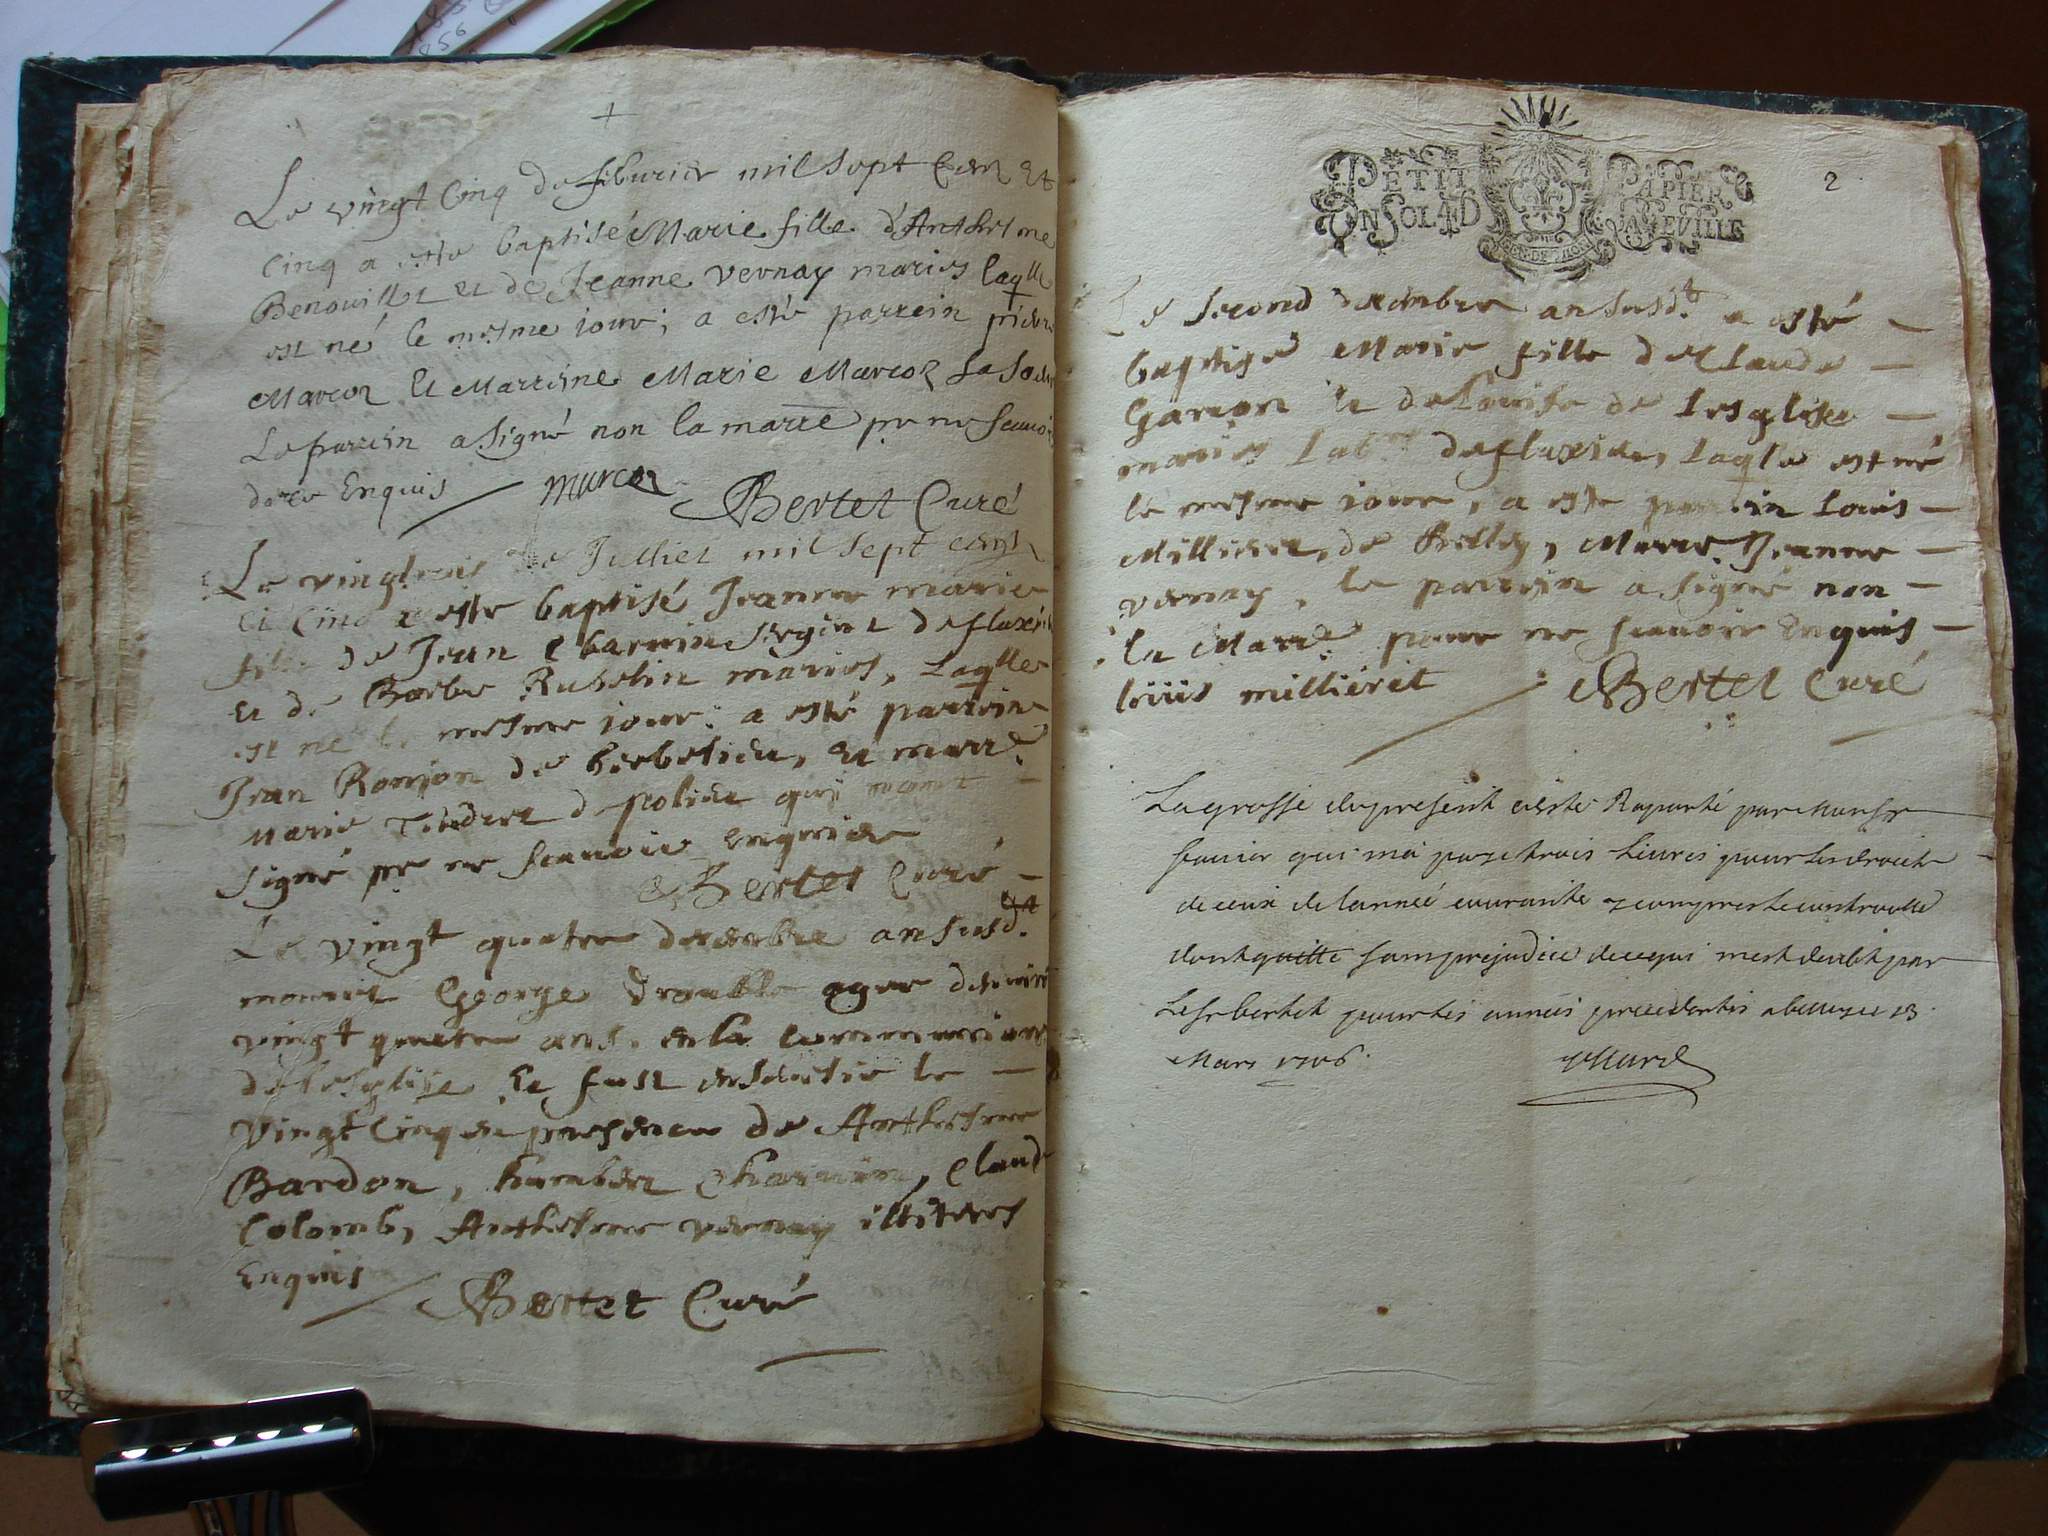 Le vingt Cinq de feburier mil sept Cent Et
Cinq a esté baptisé Marie fille d'Anthelme
Benouillet et de Jeanne vernay maries laqlle
est né le mesme iour; a esté parrein
Marcoz Et Marreine Marie Marcoz sa
Le parrein a signé non la marre pr ne scauoir
Enquis Marcoz
Bertet Curé
Le de Juillet mil sept cent
et cinq a esté baptisé Jeanne marie
fille de Jean Charvin de fluxieu
Et de Barbe Rubelin maries, Laqlle
est né le mesme iour: a esté parrein
Jean Romion de Et marre
Marie de polieu qui
signé pr ne scauoir enquis
Bertet Curé
Le vingt quatre decembre an susd.
mourut George Drouble
vingt quatre ans, en la communion
de l'esglise Et fust enseueli le
vingt Cinq en presence de Anthelme
Bardon, humbert Charvin, Claude
Colomb, Anthelme vernay illiteres
Enquis
Bertet Curé
2
PETIT PAPIER
UN SOL 4 D LA FEUILLE
Le second decembre an susd.t a esté
baptisé Marie fille de Claude
Garcon et de Louise de l'esglise
maries de fluxieu, laqlle est né
le mesme iour, a esté parrein Louis
Millieret, de Belley, Marre Jeanne
vernay, le parrein a signé non
la Marre pour ne scauoir Enquis
louis millieret Bertet Curé
La grosse du present a esté Raporté par
qui ma payé trois Liures pour les droits
de ceux de lannée courante y compris le controlle
dont quitte sans prejudice de ce qui mest deubt par
Le sr bertet pour les années precedentes a belley ce 23
Mars 1706.